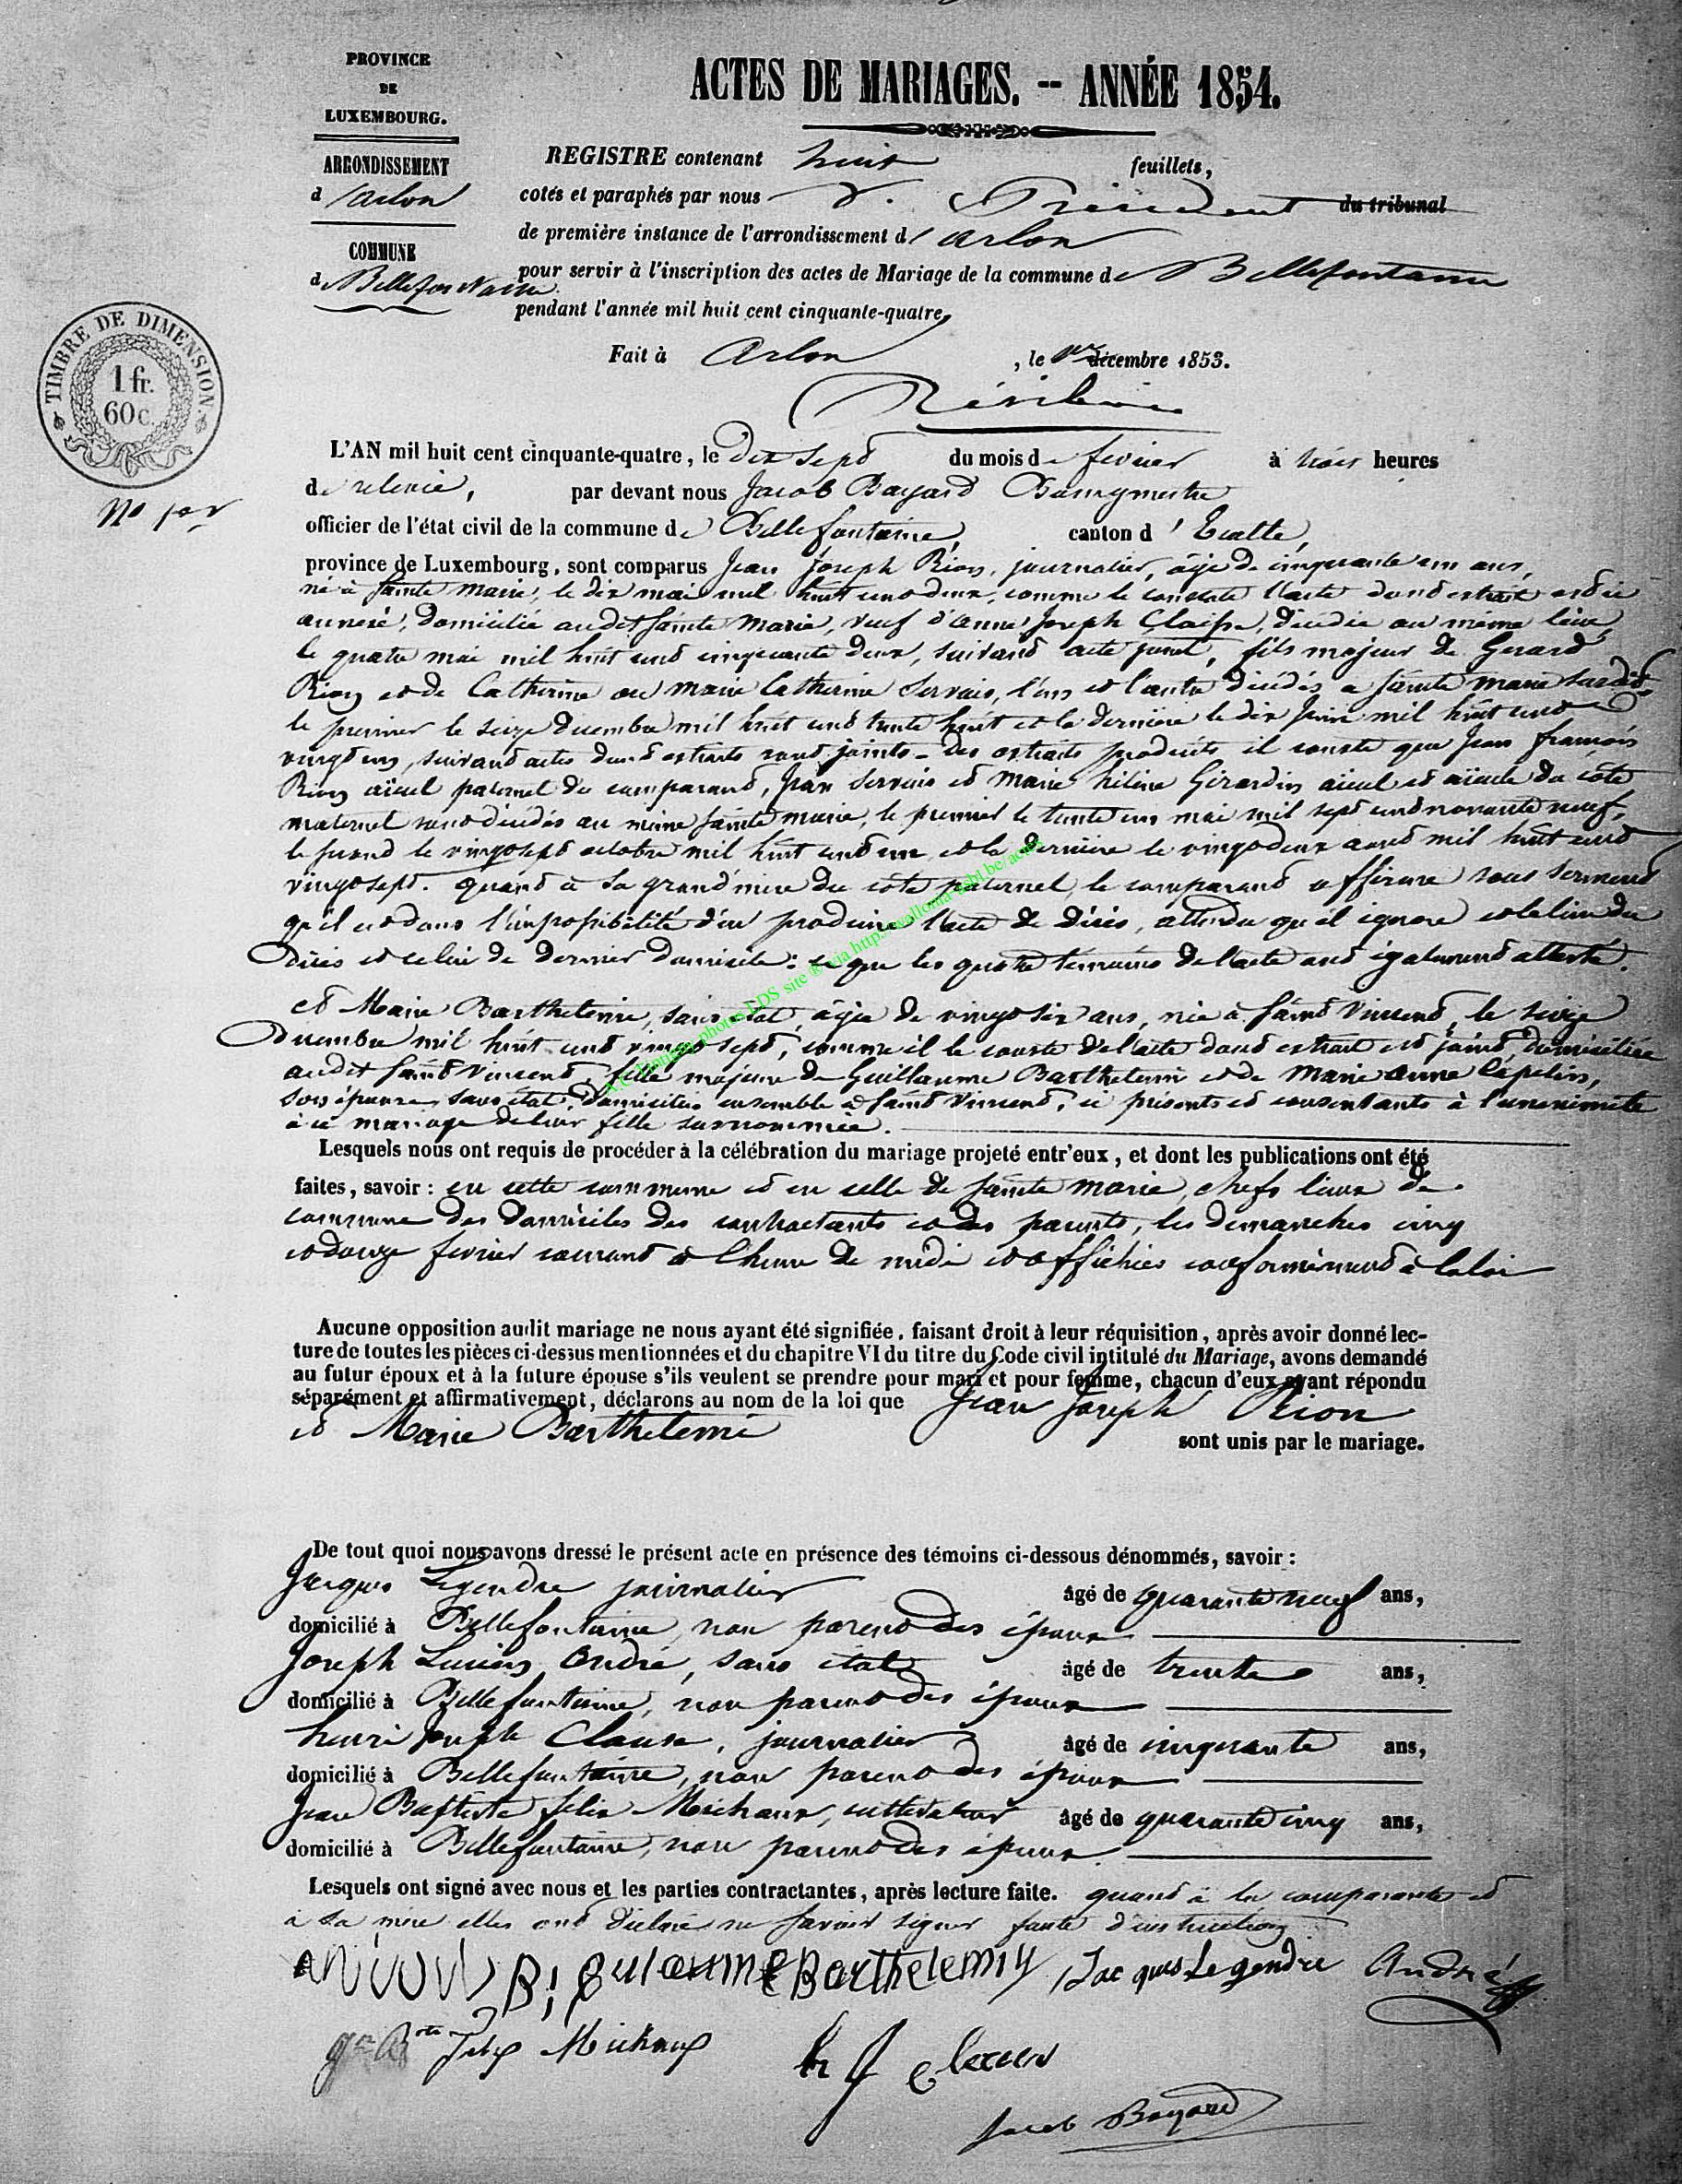 PROVINCE
DE
LUXEMBOURG.
ARRONDISSEMENT
d'Arlon
COMMUNE
de Bellefontaine
ACTES DE MARIAGES. -- ANNÉE 1854.
REGISTRE contenant huit feuillets,
cotés et paraphés par nous Président du tribunal
de première instance de l'arrondissement d'Arlon
pour servir à l'inscription des actes de Mariage de la commune de Bellefontaine
pendant l'année mil huit cent cinquante-quatre,
Fait à Arlon, le 1er décembre 1853.
TIMBRE DE DIMENSION.
1 fr.
60 c.
No 1er
L'AN mil huit cent cinquante-quatre, le dix sept du mois de février à trois heures
de relevée, par devant nous Jacob Bayard Bourgmestre
officier de l'état civil de la commune de Bellefontaine, canton d'Etalle,
province de Luxembourg, sont comparus Jean Joseph Rion, journalier, âgé de cinquante un ans,
né à Sainte Marie, le dix mai mil huit cent deux, comme le constate l'acte dont extrait est ci
annexé, domicilié audit Sainte Marie, veuf d'Anne Joseph, décédée au même lieu,
le quatre mai mil huit cent cinquante deux, suivant acte joint, fils majeur de Gerard
Rion et de Catherine ou Marie Catherine Servais, l'un et l'autre décédés à Sainte Marie susdit
le premier le seize décembre mil huit cent trente huit et la dernière le dix juin mil huit cent
vingt un, suivant actes dont extraits sont joints - des extraits produits il conste que Jean François
Rion aïeul paternel du comparant, Jean Servais et Marie Hélène Girardin aïeul et aïeule du côté
maternel sont décédés au même Sainte Marie, le premier le trente un mai mil sept cent nonante neuf,
le second le vingt sept octobre mil huit cent un et la dernière le vingt deux août mil huit cent
vingt sept. quant à sa grand'mère du côté paternel le comparant affirme sous serment
qu'il est dans l'impossibilité d'en produire l'acte de décès, attendu qu'il ignore et le lieu du
décès et celui de dernier domicile: ce que les quatre témoins de l'acte ont également attesté.
et Marie Barthelemi, sans état, âgée de vingt six ans, née à Saint Vincent, le seize
décembre mil huit cent vingt sept, comme il le conste de l'acte dont extrait est joint, domiciliée
audit Saint Vincent, fille majeure de Guillaume Barthelemi et de Marie Anne Lépelin,
son épouse, sans état, domiciliés ensemble à Saint Vincent, ci présents et consentants à l'unanimité
à ce mariage de leur fille surnommée.
Lesquels nous ont requis de procéder à la célébration du mariage projeté entr'eux, et dont les publications ont été
faites, savoir: en cette commune et en celle de Sainte Marie, chefs lieux de
commune des domiciles des contractants et des parents, les dimanches cinq
et douze février courant à l'heure de midi et affichées conformément à la loi
Aucune opposition audit mariage ne nous ayant été signifiée, faisant droit à leur réquisition, après avoir donné lec-
ture de toutes les pièces ci-dessus mentionnées et du chapitre VI du titre du Code civil intitulé du Mariage, avons demandé
au futur époux et à la future épouse s'ils veulent se prendre pour mari et pour femme, chacun d'eux ayant répondu
séparément et affirmativement, déclarons au nom de la loi que Jean Joseph Rion
et Marie Barthelemi sont unis par le mariage.
De tout quoi nous avons dressé le présent acte en présence des témoins ci-dessous dénommés, savoir:
Jacques Legendre journalier âgé de quarante neuf ans,
domicilié à Bellefontaine, non parent des époux
Joseph Lucien André, sans état âgé de trente ans,
domicilié à Bellefontaine, non parent des époux
henri Joseph Clause, journalier âgé de cinquante ans,
domicilié à Bellefontaine, non parent des époux
Jean Baptiste felix Michaux, cultivateur âgé de quarante cinq ans,
domicilié à Bellefontaine, non parent des époux.
Lesquels ont signé avec nous et les parties contractantes, après lecture faite. quant à la comparante et
à sa mère elles ont déclaré ne savoir signer faute d'instruction
Barthelemiy Jacques Legendre André
Michaux
h J
Jacob Bayard